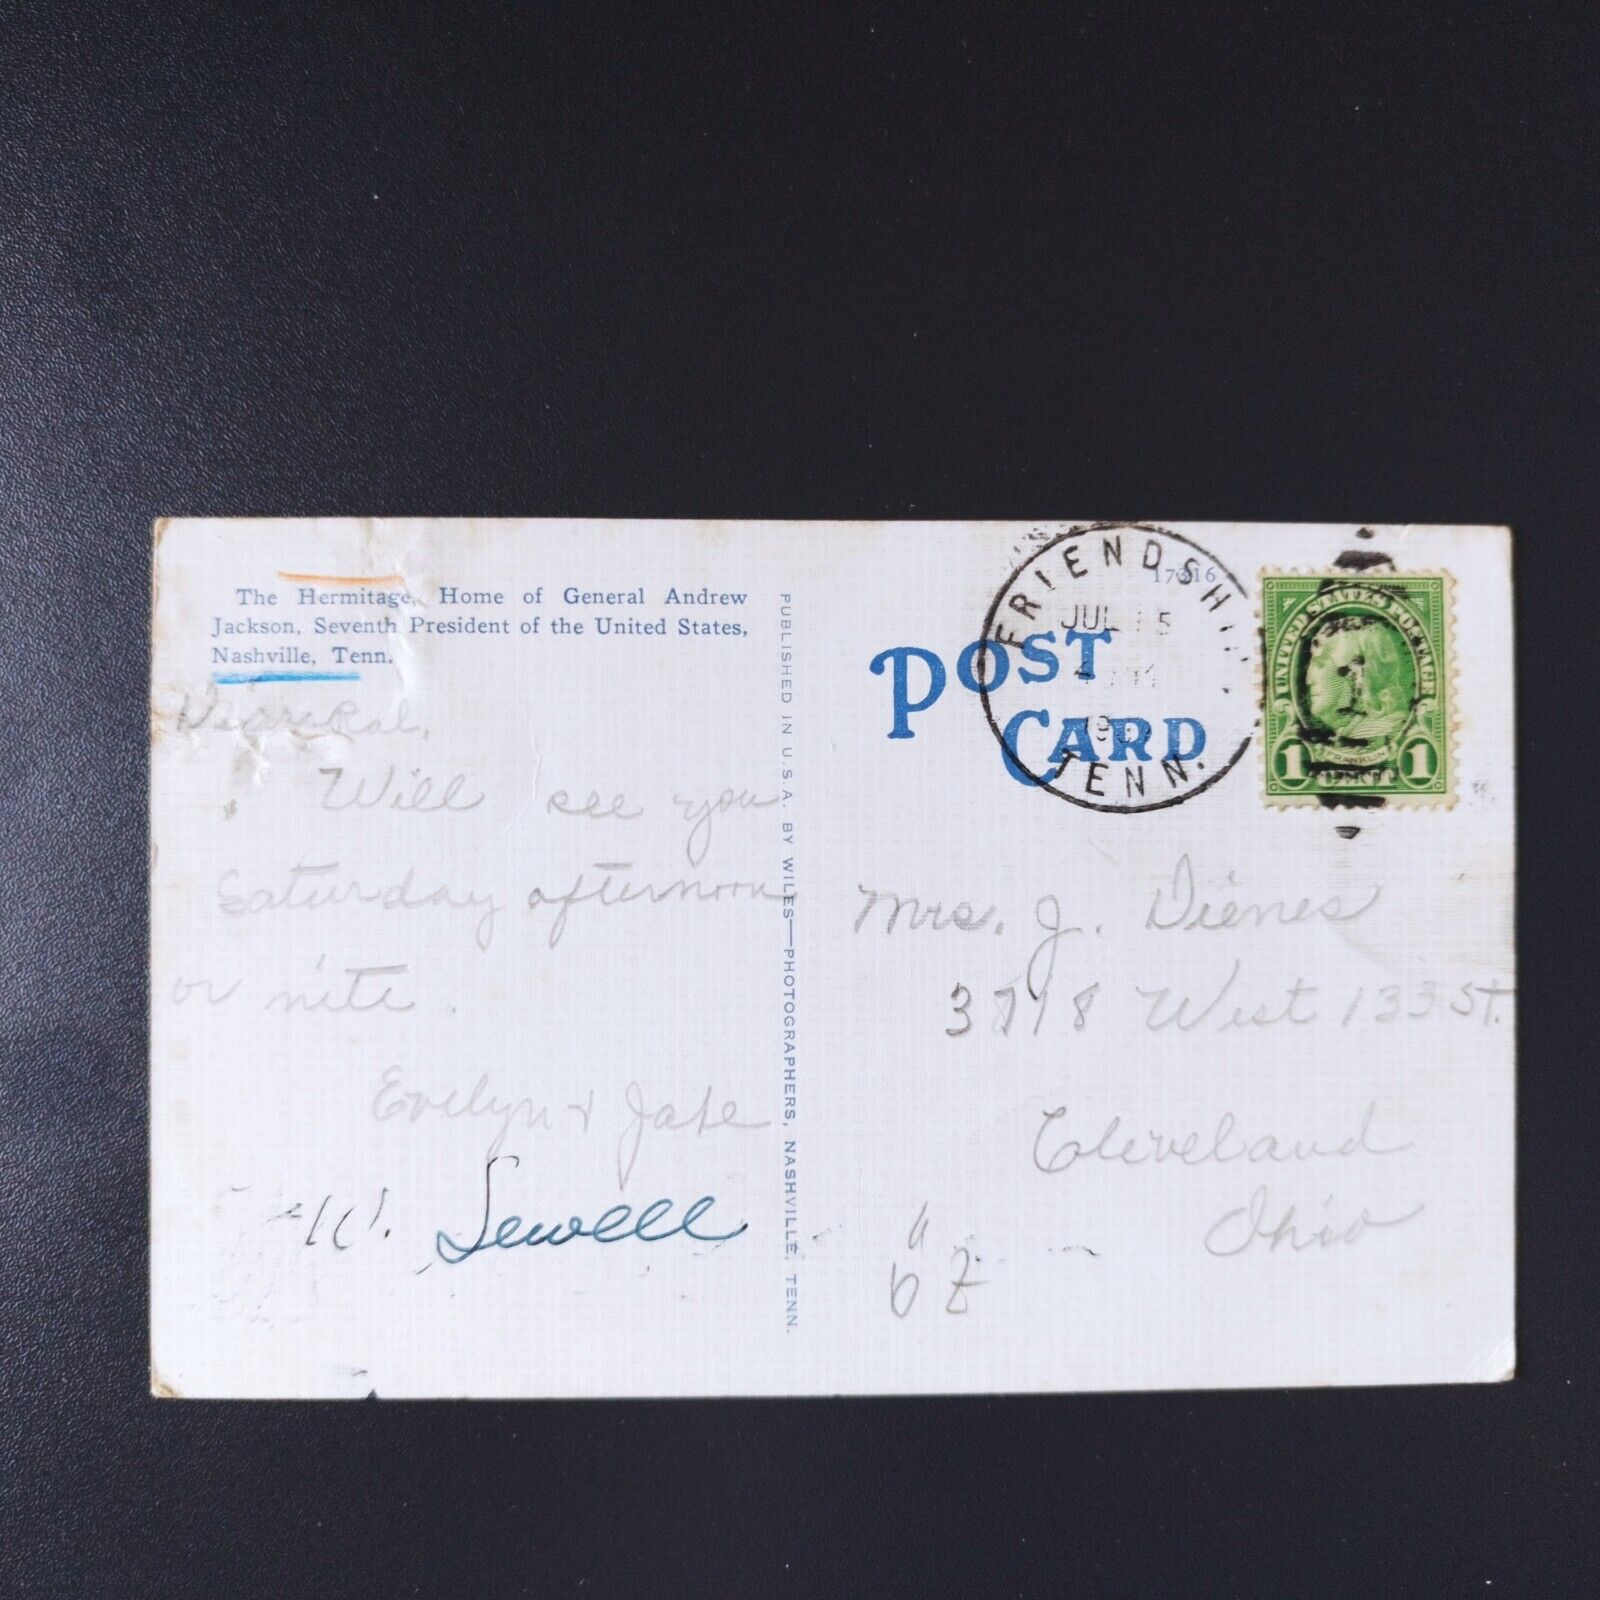 The Hermitage, Home of General Andrew
Jackson, Seventh President of the United States,
Nashville, Tenn.
Will see you
Saturday afternoon
or nite.
Evelyn & Jake
Sewell
PUBLISHED IN U.S.A. BY WILES—PHOTOGRAPHERS, NASHVILLE, TENN.
17316
POST
CARD
FRIENDSHI
JUL 15
TENN.
UNITED STATES POSTAGE
FRANKLIN
1 1
Mrs. J. Dienes
3718 West 133 St.
Cleveland
Ohio